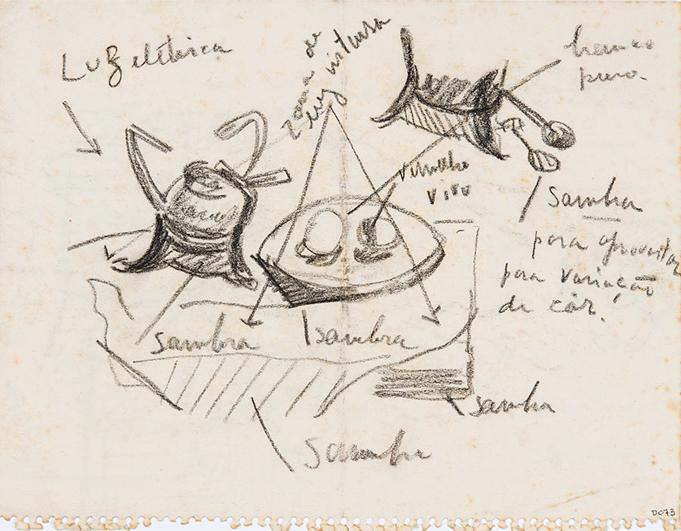 Luz elétrica
zona de
luz
branco
puro.
vermelho
vivo
Sombra
para aproveitar
para variação
de côr!
sombra
sombra
sombra
sombra
D073